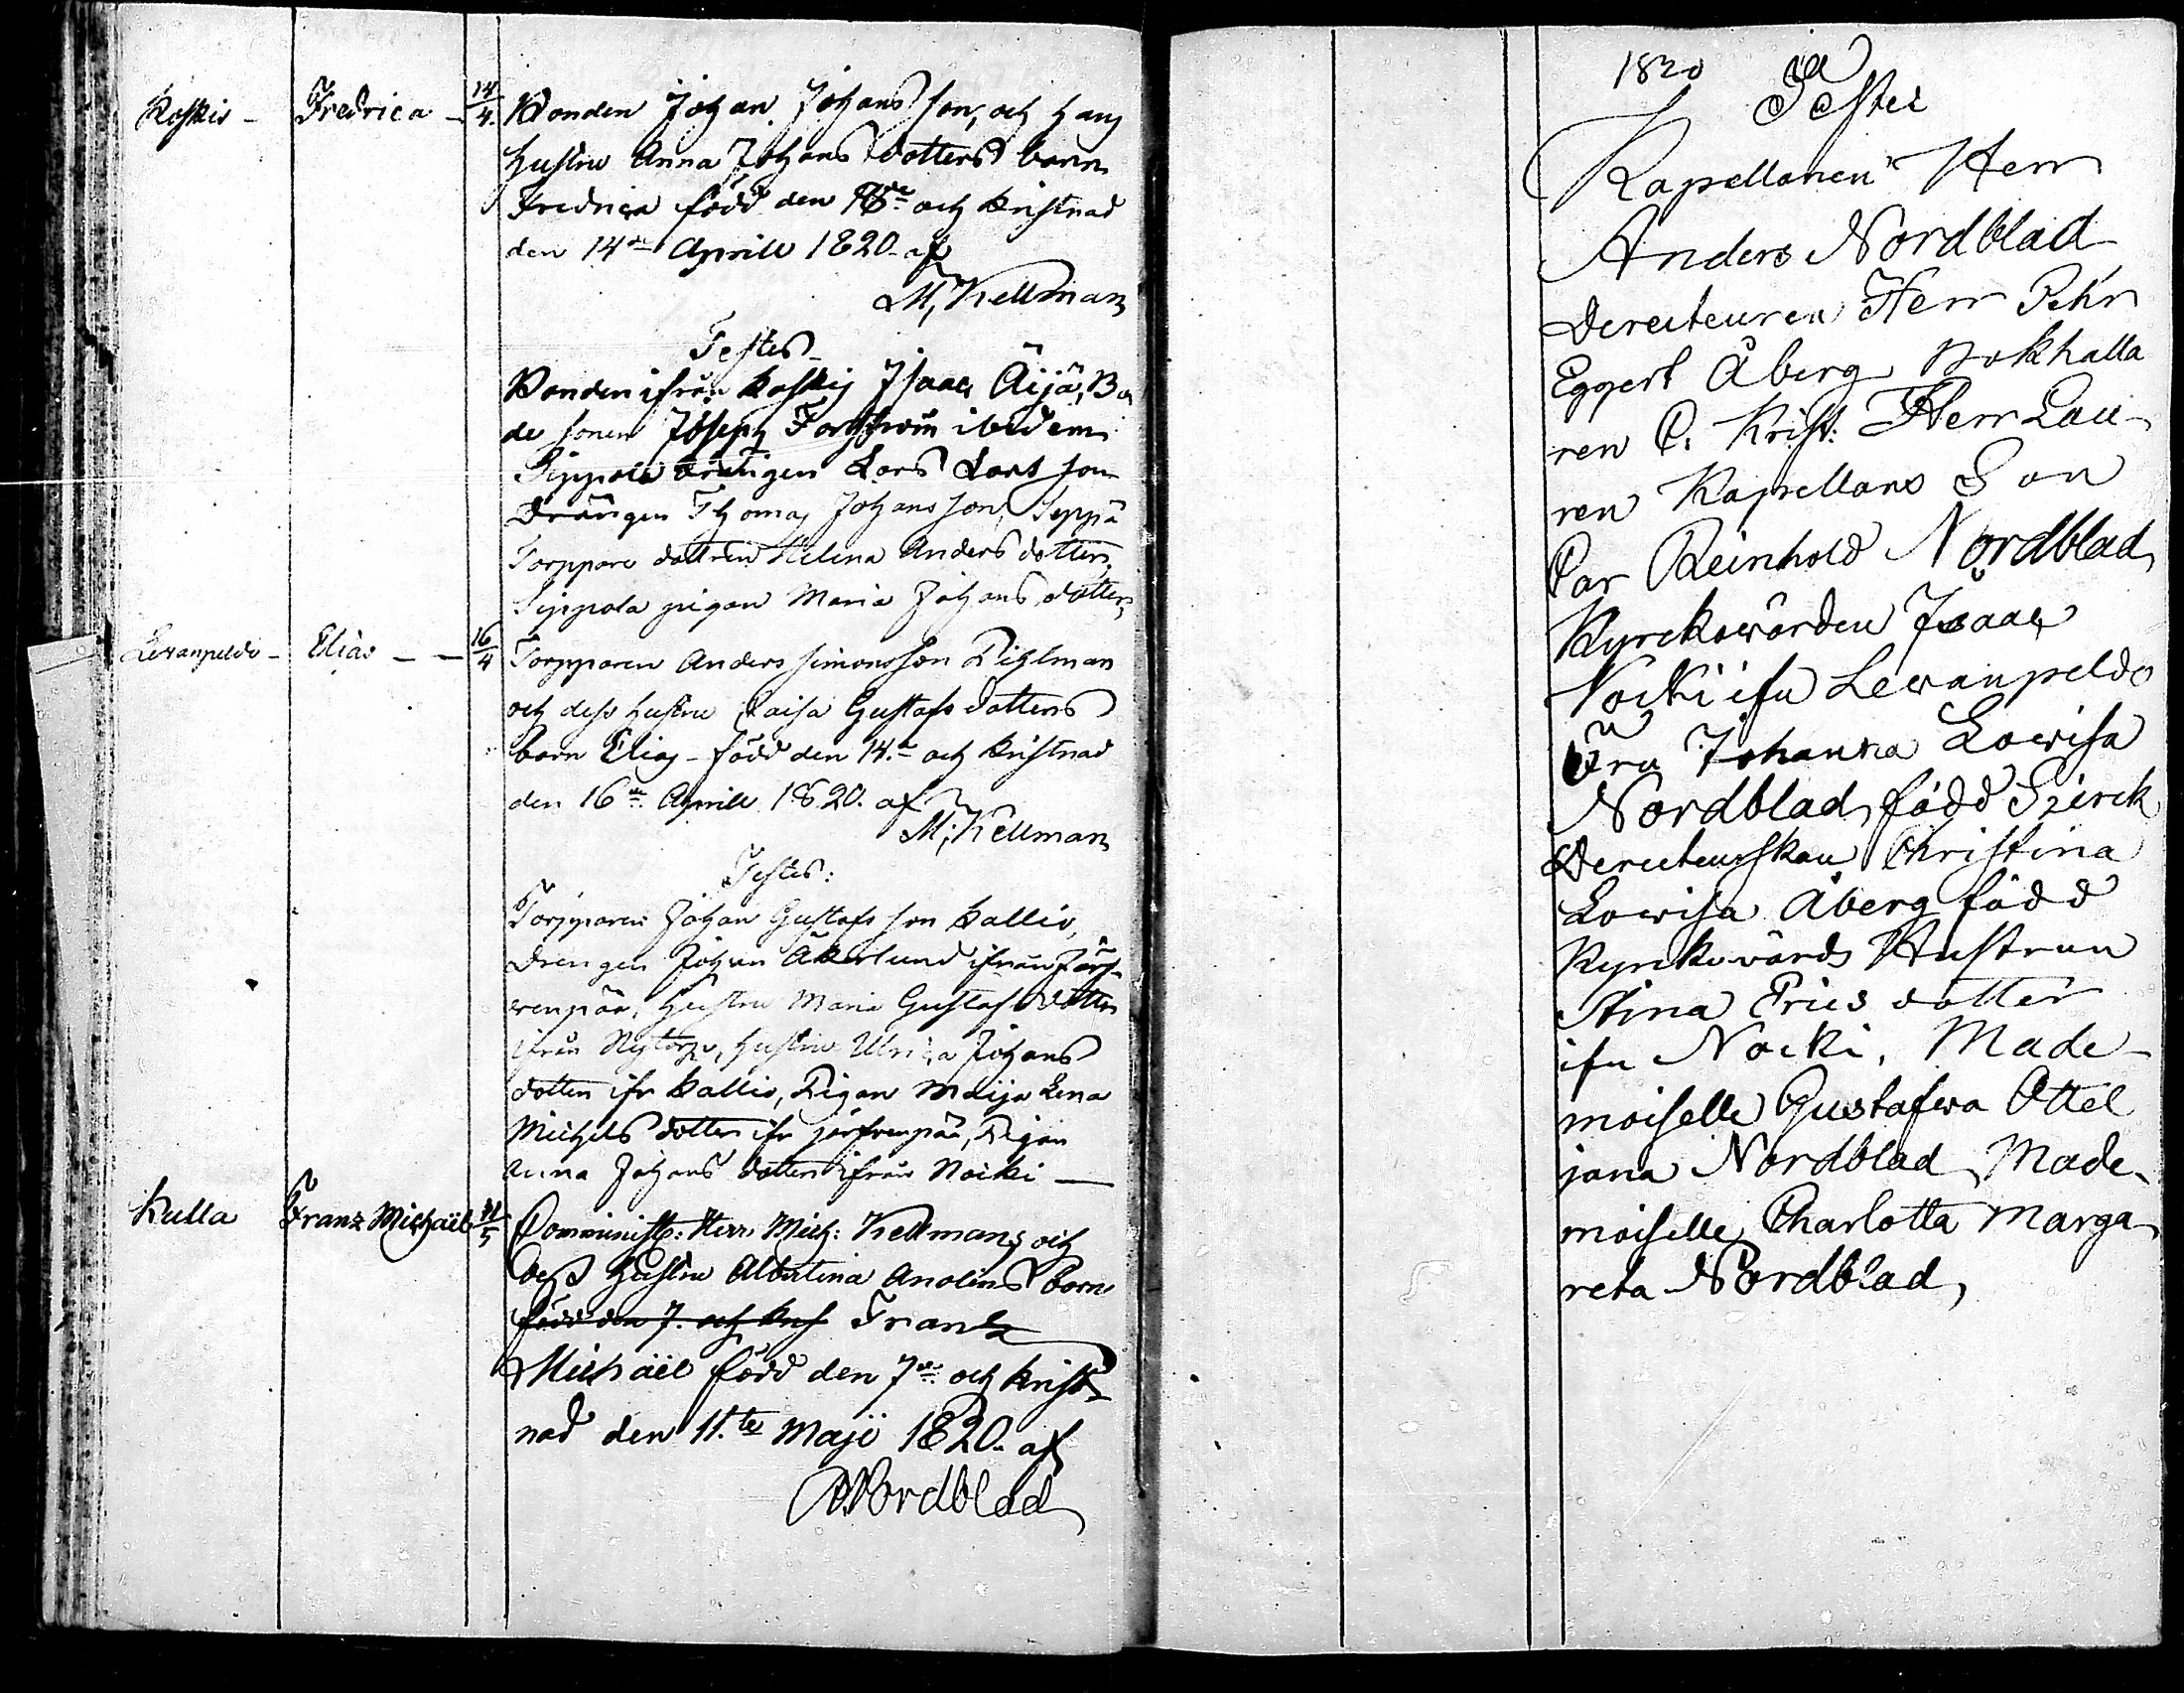 Koskis - Fredrica - 14/4. Bonden Johan Johans son, och hans
hustru Anna Johans dotters barn
Fredrica född den och kristnad
den 14de Aprill 1820. af
M, Kellman
Testes
Bonden ifrån Koskis Isaac Äijä, Bon
de sonen Joseph ibidem
Sippola drängen Lars Lars son
Drängen Thomas Johans son, Seppä
Torppare dottren Helena Anders dotter,
Sippola pigan Maria Johans dotter,
Levanpeldo - Elias - - 16/4 Torpparen Anders Simons son Pihlman
och dess hustru Caisa Gustafs dotters
barn Elias - född den 14.de och kristnad
den 16de Aprill 1820. af
M, Kellman
Testes:
Torpparen Johan Gustafs son Kallio,
Drengen Johan Åkerlund ifrån Järf-
venpää, hustru Maria Gustafs dotter
ifrån Nytorp, hustru Ulrica Johans
dotter ifr Kallio, Pigan Maija Lena
Michels dotter ifr Järfvenpää, Pigan
Anna Johans dotter ifrån Nocki -
Kulla Franz Michaël 11/5 Comminist: Herr Mich: Kellmans och
dess hustru Albertina Anolins Barn
född den 7. och kris Frantz
Michaël född den 7de och krist-
nad den 11.te Maji 1820. af
A. Nordblad
1820 Testes
Kapellanen Herr
Anders Nordblad
Derecteuren Herr Pehr
Eggert Åberg Bokhalla
ren C. Krist: Herr Lau-
ren Kapellans Son
Car Reinhold Nordblad
Kyrckowärden Isaac
Nocki ifn Lewanpeldo
Fru Johanna Lowisa
Nordblad född
Derecteurskan Christina
Lowisa Åberg född
Kyrckowärds Hustrun
Stina Erics dotter
ifn Nocki, Made-
moiselle Gustafwa Ottel
jana Nordblad Made-
moiselle Charlotta Marga-
reta Nordblad,